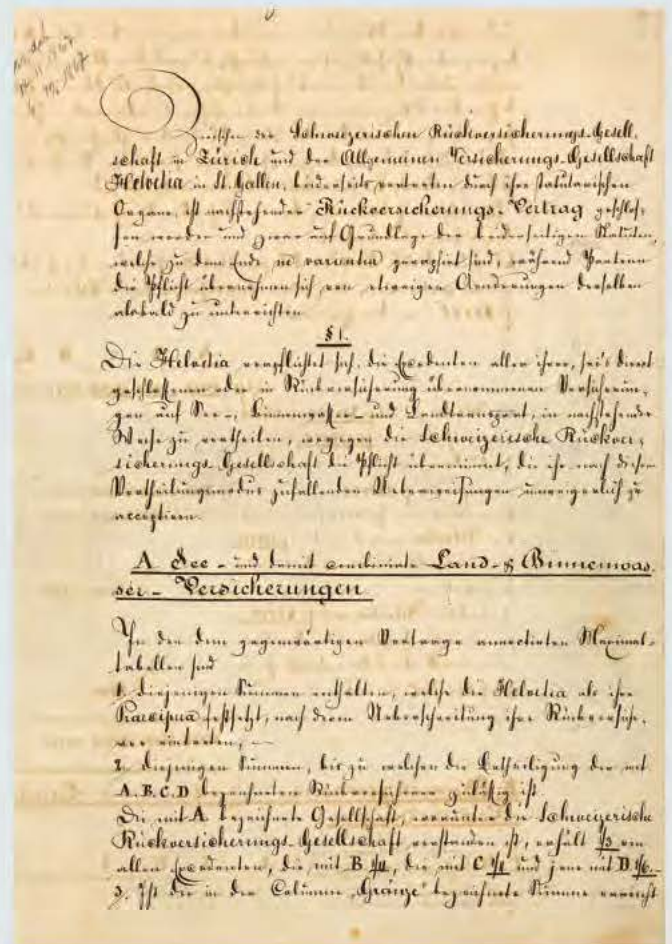 Zwischen der Schweizerischen Rückversicherungs-Gesell-
schaft in Zürich und der Allgemeinen Versicherungs-Gesellschaft
Helvetia in St. Gallen, beiderseits vertreten durch ihre statutarischen
Organe, ist nachstehender Rückversicherungs-Vertrag geschlos-
sen worden und zwar auf Grundlage der beiderseitigen Statuten,
welche zu dem Ende ne varientur paraphirt sind, während Parteien
die Pflicht übernehmen sich von etwaigen Aenderungen derselben
alsbald zu unterrichten.
§ 1.
Die Helvetia verpflichtet sich, die Excedenten aller ihrer, sei's direct
geschlossenen oder in Rückversicherung übernommenen Versicherun-
gen auf See-, Binnenwasser- und Landtransport, in nachstehender
Weise zu vertheilen, wogegen die Schweizerische Rückver-
sicherungs-Gesellschaft die Pflicht übernimmt, die ihr nach diesem
Vertheilungsmodus zufallenden Ueberweisungen unweigerlich zu
acceptiren.
A See- und damit combinirte Land- & Binnenwas-
ser-Versicherungen
In den dem gegenwärtigen Vertrage annectirten Maximal-
tabellen sind
1. diejenigen Summen enthalten, welche die Helvetia als ihre
Praecipua festsetzt, nach deren Ueberschreitung ihre Rückversiche-
rer eintreten,
2. diejenigen Summen, bis zu welchen die Betheiligung der mit
A. B. C. D bezeichneten Rückversicherer zulässig ist.
Die mit A bezeichnete Gesellschaft, worunter die Schweizerische
Rückversicherungs-Gesellschaft verstanden ist, erhält 1/3 von
allen Excedenten, die mit B 1/4, die mit C und jene mit D
3. Ist die in der Columne "Gränze" bezeichnete Summe erreicht